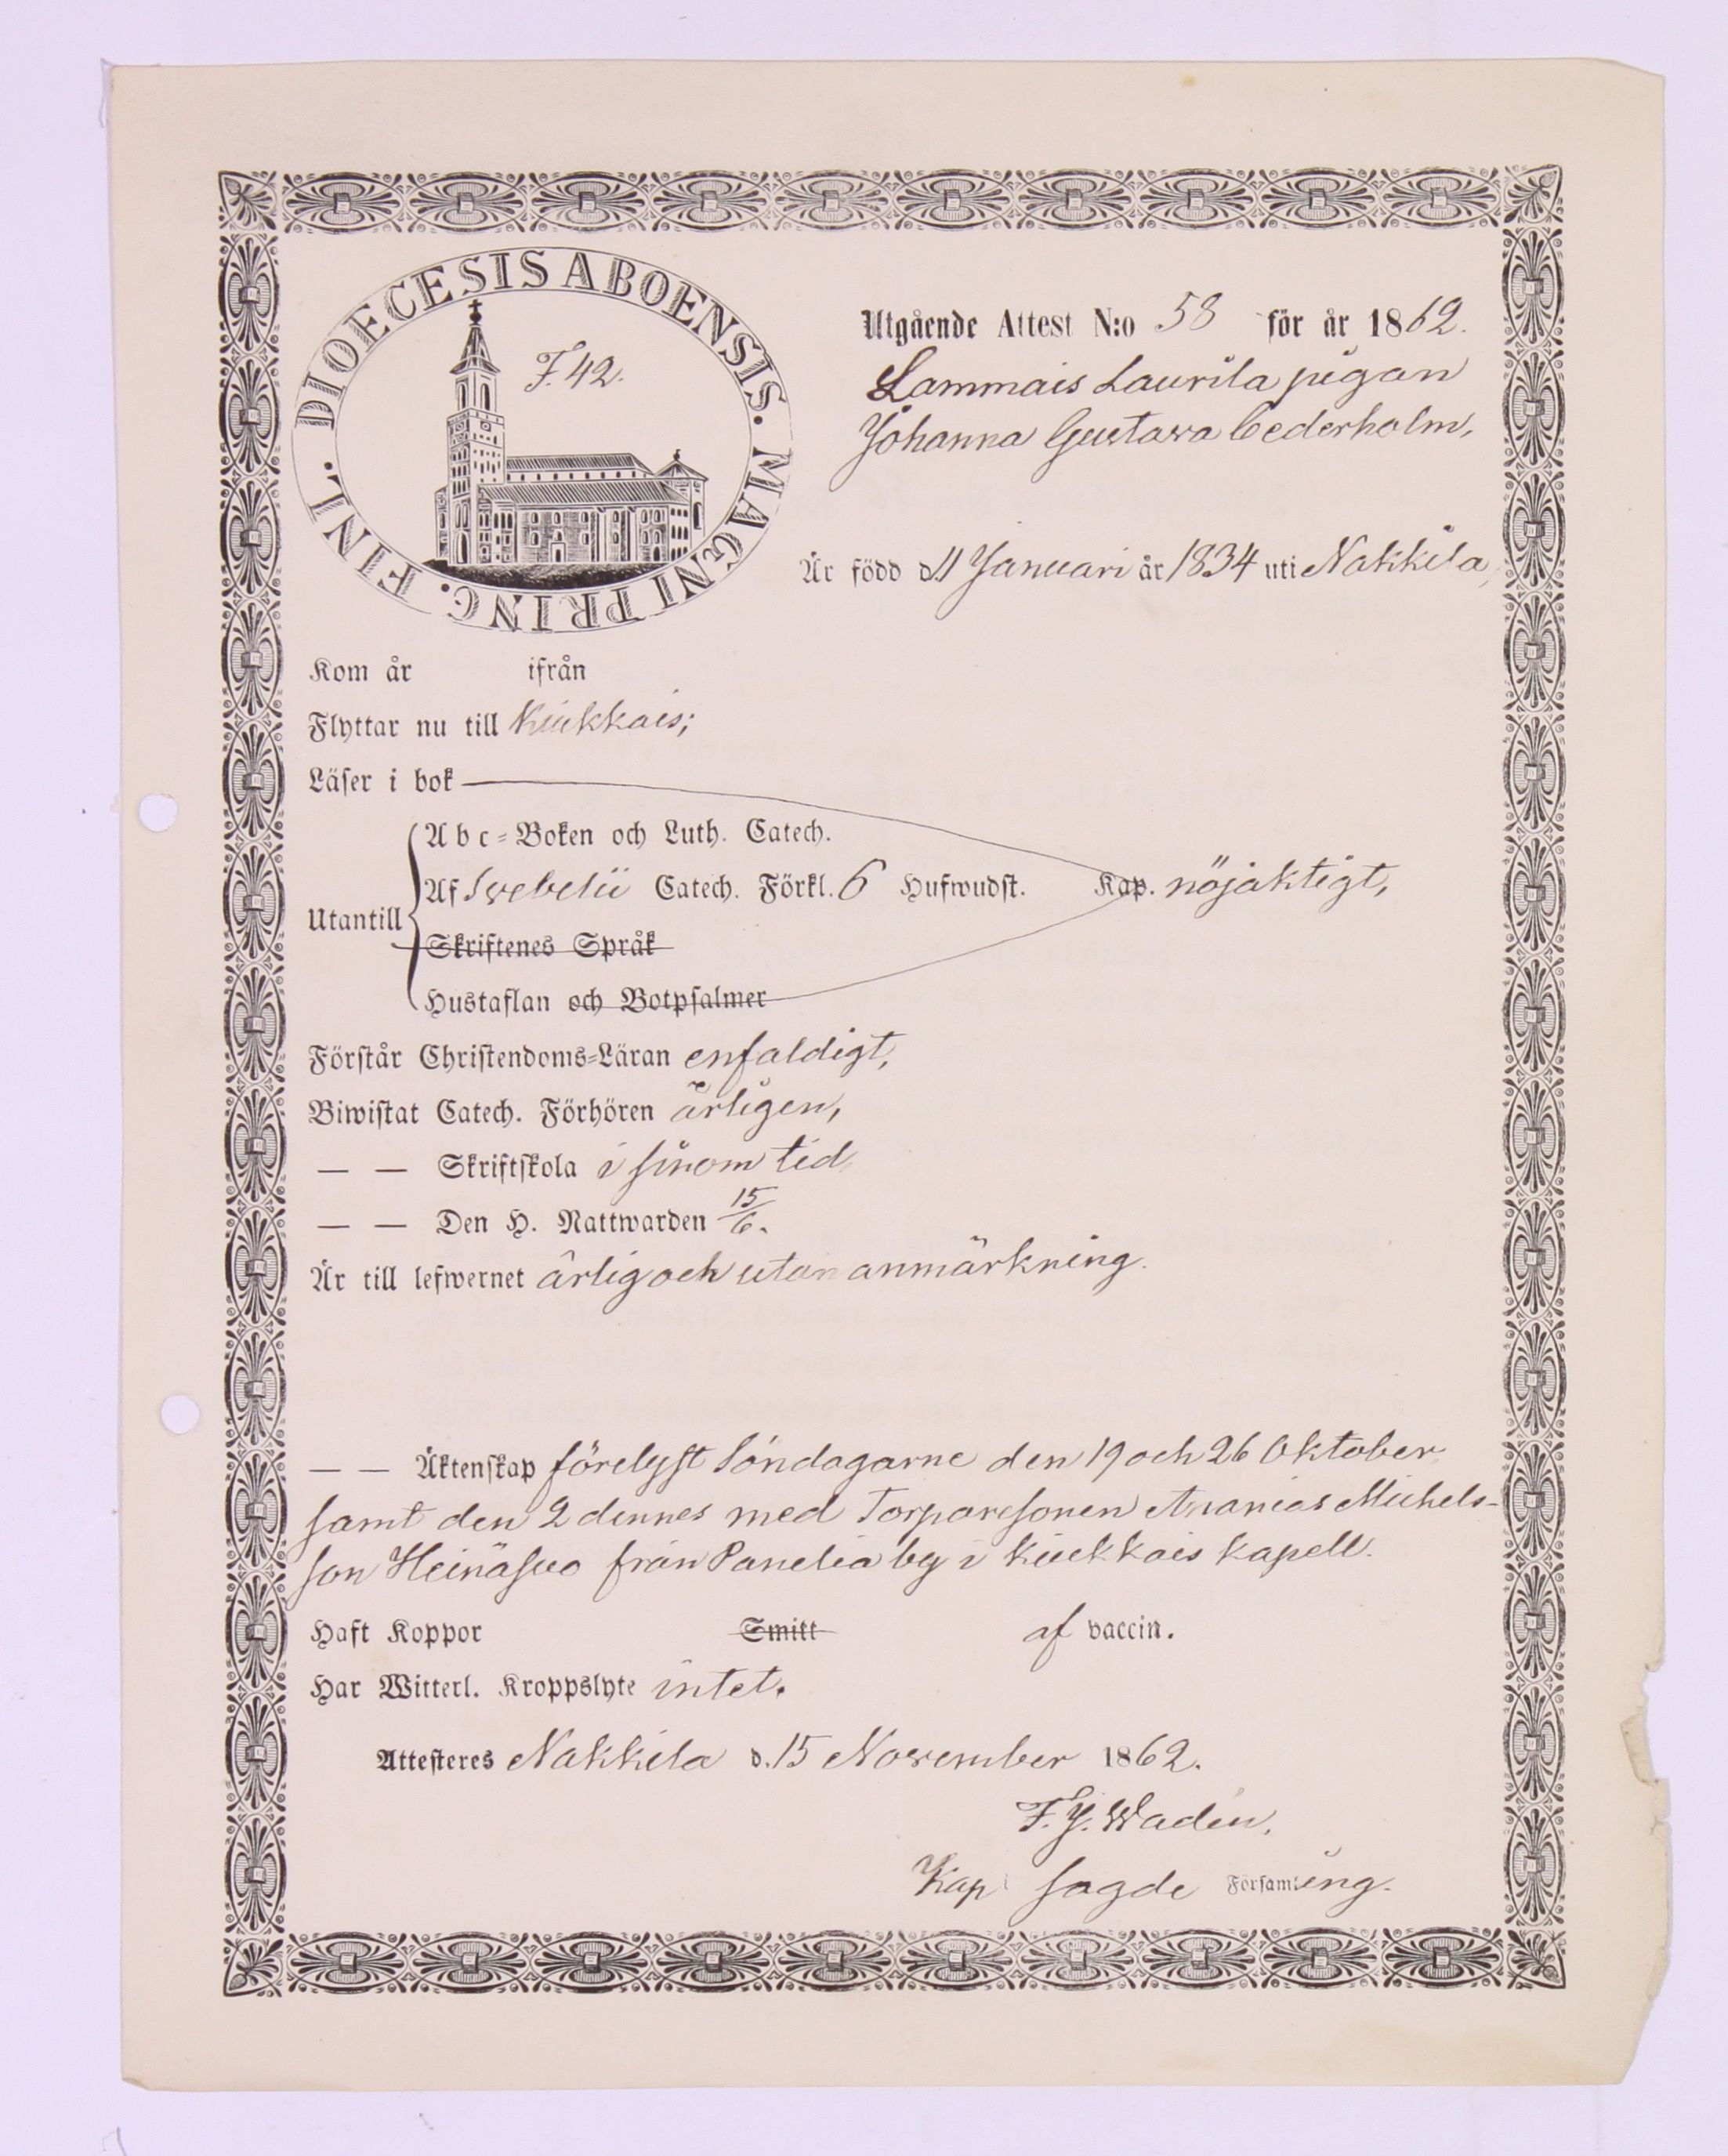 DIOECESIS ABOENSIS. MAGNI PRINC. FINL.
F. 42.
Utgående Attest N:o 58 för år 1862.
Lammais Laurila pigan
Johanna Gustava Cederholm,
Är född d. 11 Januari år 1834 uti Nakkila,
Kom år ifrån
Flyttar nu till Kiukkais;
Läser i bok
Abc-Boken och Luth. Catech.
Utantill Af Svebelii Catech. Förkl. 6 Hufwudst. Kap. nöjaktigt,
Skriftenes Språk
Hustaflan och Botpsalmer
Förstår Christendoms-Läran enfaldigt,
Biwistat Catech. Förhören årligen,
— — Skriftskola i sinom tid,
— — Den H. Nattwarden 15/6.
Är till lefwernet ärlig och utan anmärkning.
— — Äktenskap förelyst Söndagarne den 19 och 26 Oktober
samt den 2 dennes med Torparesonen Ananias Michels-
son Heinäsuo från Panelia by i Kiukkais kapell.
Haft Koppor Smitt af vaccin.
Har Witterl. Kroppslyte intet.
Attesteres Nakkila d. 15 November 1862.
F. J. Wadén.
Kap i sagde Församling.